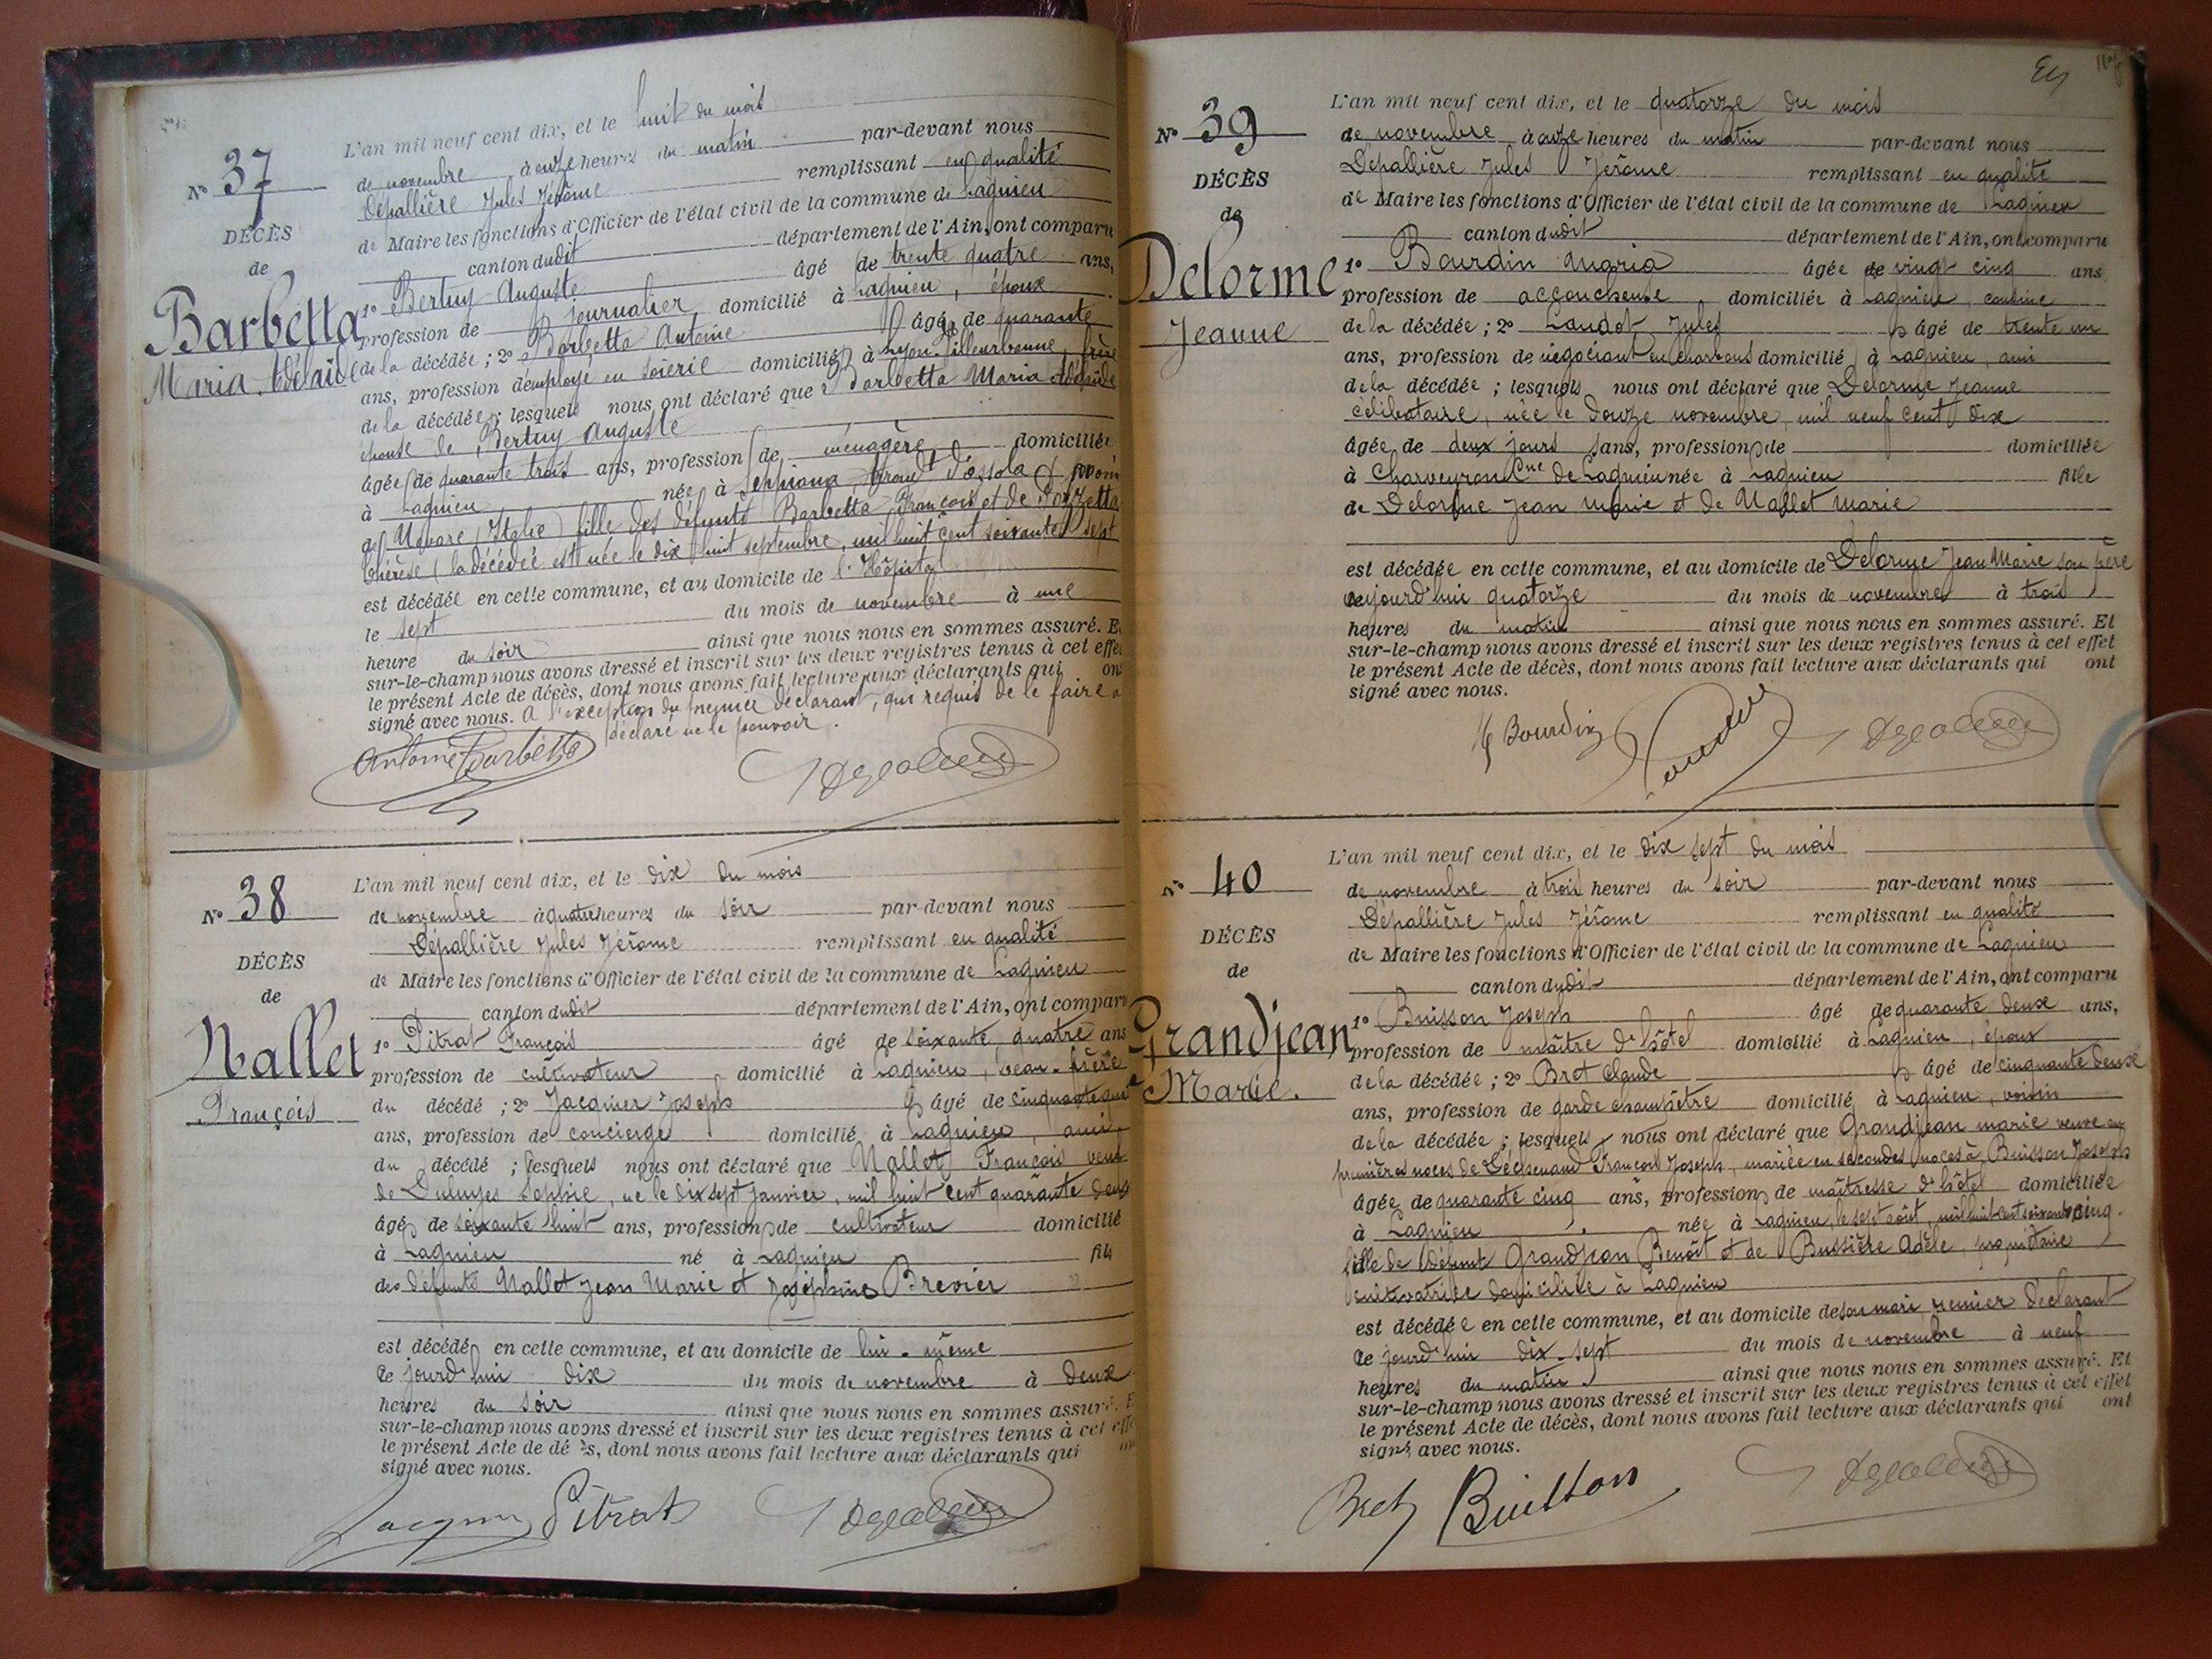 L'an mil neuf cent dix, et le huit du mois
de novembre à onze heures du matin par-devant nous
Nº 37
Dépallière Jules Jérôme remplissant en qualité
DÉCÈS
de Maire les fonctions d'Officier de l'état civil de la commune de Lagnieu
de
canton dudit département de l'Ain, ont comparu
Barbetta
1º Bertuy Auguste âgé de trente quatre ans,
Maria Adélaïde
profession de journalier domicilié à Lagnieu, époux
de la décédée ; 2º Barbetta Antoine âgé de quarante
ans, profession d'employé en soierie domicilié à Lyon-Villeurbanne, frère
de la décédée ; lesquels nous ont déclaré que Barbetta Maria Adélaïde
épouse de Bertuy Auguste
âgée de quarante trois ans, profession de ménagère domiciliée
à Lagnieu née à d'Ossola
de Novare (Italie) fille des défunts Barbetta François et de
Thérèse (la décédée est née le dix huit septembre, mil huit cent soixante sept
est décédée en cette commune, et au domicile de l'Hôpital
le sept du mois de novembre à une
heure du soir ainsi que nous nous en sommes assuré. Et
sur-le-champ nous avons dressé et inscrit sur les deux registres tenus à cet effet
le présent Acte de décès, dont nous avons fait lecture aux déclarants qui ont
signé avec nous. A l'exception du premier déclarant, qui requis de le faire a
déclaré ne le pouvoir.
Antoine Barbetta
L'an mil neuf cent dix, et le dix du mois
Nº 38
de novembre à quatre heures du soir par-devant nous
Dépallière Jules Jérôme remplissant en qualité
DÉCÈS
de Maire les fonctions d'Officier de l'état civil de la commune de Lagnieu
de
canton dudit département de l'Ain, ont comparu
Nallet
1º Pitrat François âgé de soixante quatre ans
François
profession de cultivateur, domicilié à Lagnieu, beau-frère
du décédé ; 2º Jacquier Joseph âgé de
ans, profession de concierge domicilié à Lagnieu, ami
du décédé ; lesquels nous ont déclaré que Nallet François veuf
de Sophie, né le dix sept janvier, mil huit cent quarante deux
âgé de soixante huit ans, profession de cultivateur domicilié
à Lagnieu né à Lagnieu fils
des défunts Nallet Jean Marie et Joséphine Brevier
est décédé en cette commune, et au domicile de lui-même
ce jourd'hui dix du mois de novembre à deux
heures du soir ainsi que nous nous en sommes assuré. Et
sur-le-champ nous avons dressé et inscrit sur les deux registres tenus à cet effet
le présent Acte de décès, dont nous avons fait lecture aux déclarants qui ont
signé avec nous.
Jacquier Pitrat
L'an mil neuf cent dix, et le quatorze du mois
Nº 39
de novembre à onze heures du matin par-devant nous
Dépallière Jules Jérôme remplissant en qualité
DÉCÈS
de Maire les fonctions d'Officier de l'état civil de la commune de Lagnieu
de
canton dudit département de l'Ain, ont comparu
Delorme
1º Bourdin Maria âgée de vingt cinq ans
Jeanne
profession de accoucheuse domiciliée à Lagnieu, cousine
de la décédée ; 2º Landot Jules âgé de trente un
ans, profession de négociant en charbons domicilié à Lagnieu, ami
de la décédée ; lesquels nous ont déclaré que Delorme Jeanne
célibataire, née le douze novembre, mil neuf cent dix
âgée de deux jours sans, profession de domiciliée
à Charveyron Cne de Lagnieu née à Lagnieu fille
de Delorme Jean Marie et de Nallet Marie
est décédée en cette commune, et au domicile de Delorme Jean Marie son père
aujourd'hui quatorze du mois de novembre à trois
heures du matin ainsi que nous nous en sommes assuré. Et
sur-le-champ nous avons dressé et inscrit sur les deux registres tenus à cet effet
le présent Acte de décès, dont nous avons fait lecture aux déclarants qui ont
signé avec nous.
M Bourdin
L'an mil neuf cent dix, et le dix sept du mois
Nº 40
de novembre à trois heures du soir par-devant nous
Dépallière Jules Jérôme remplissant en qualité
DÉCÈS
de Maire les fonctions d'Officier de l'état civil de la commune de Lagnieu
de
canton dudit département de l'Ain, ont comparu
Grandjean
1º Buisson Joseph âgé de quarante deux ans,
Marie.
profession de maître d'hôtel domicilié à Lagnieu, époux
de la décédée ; 2º Bret Claude âgé de cinquante deux
ans, profession de garde champêtre domicilié à Lagnieu, voisin
de la décédée ; lesquels nous ont déclaré que Grandjean Marie veuve en
premières noces de François Joseph, mariée en secondes noces à Buisson Joseph
âgée de quarante cinq ans, profession de maîtresse d'hôtel domiciliée
à Lagnieu née à Lagnieu, le sept août, mil huit cent soixante cinq.
fille de défunt Grandjean Benoît et de Bussière Adèle, propriétaire
cultivatrice domiciliée à Lagnieu
est décédée en cette commune, et au domicile de son mari premier déclarant
ce jourd'hui dix-sept du mois de novembre à neuf
heures du matin ainsi que nous nous en sommes assuré. Et
sur-le-champ nous avons dressé et inscrit sur les deux registres tenus à cet effet
le présent Acte de décès, dont nous avons fait lecture aux déclarants qui ont
signé avec nous.
Bret Buisson